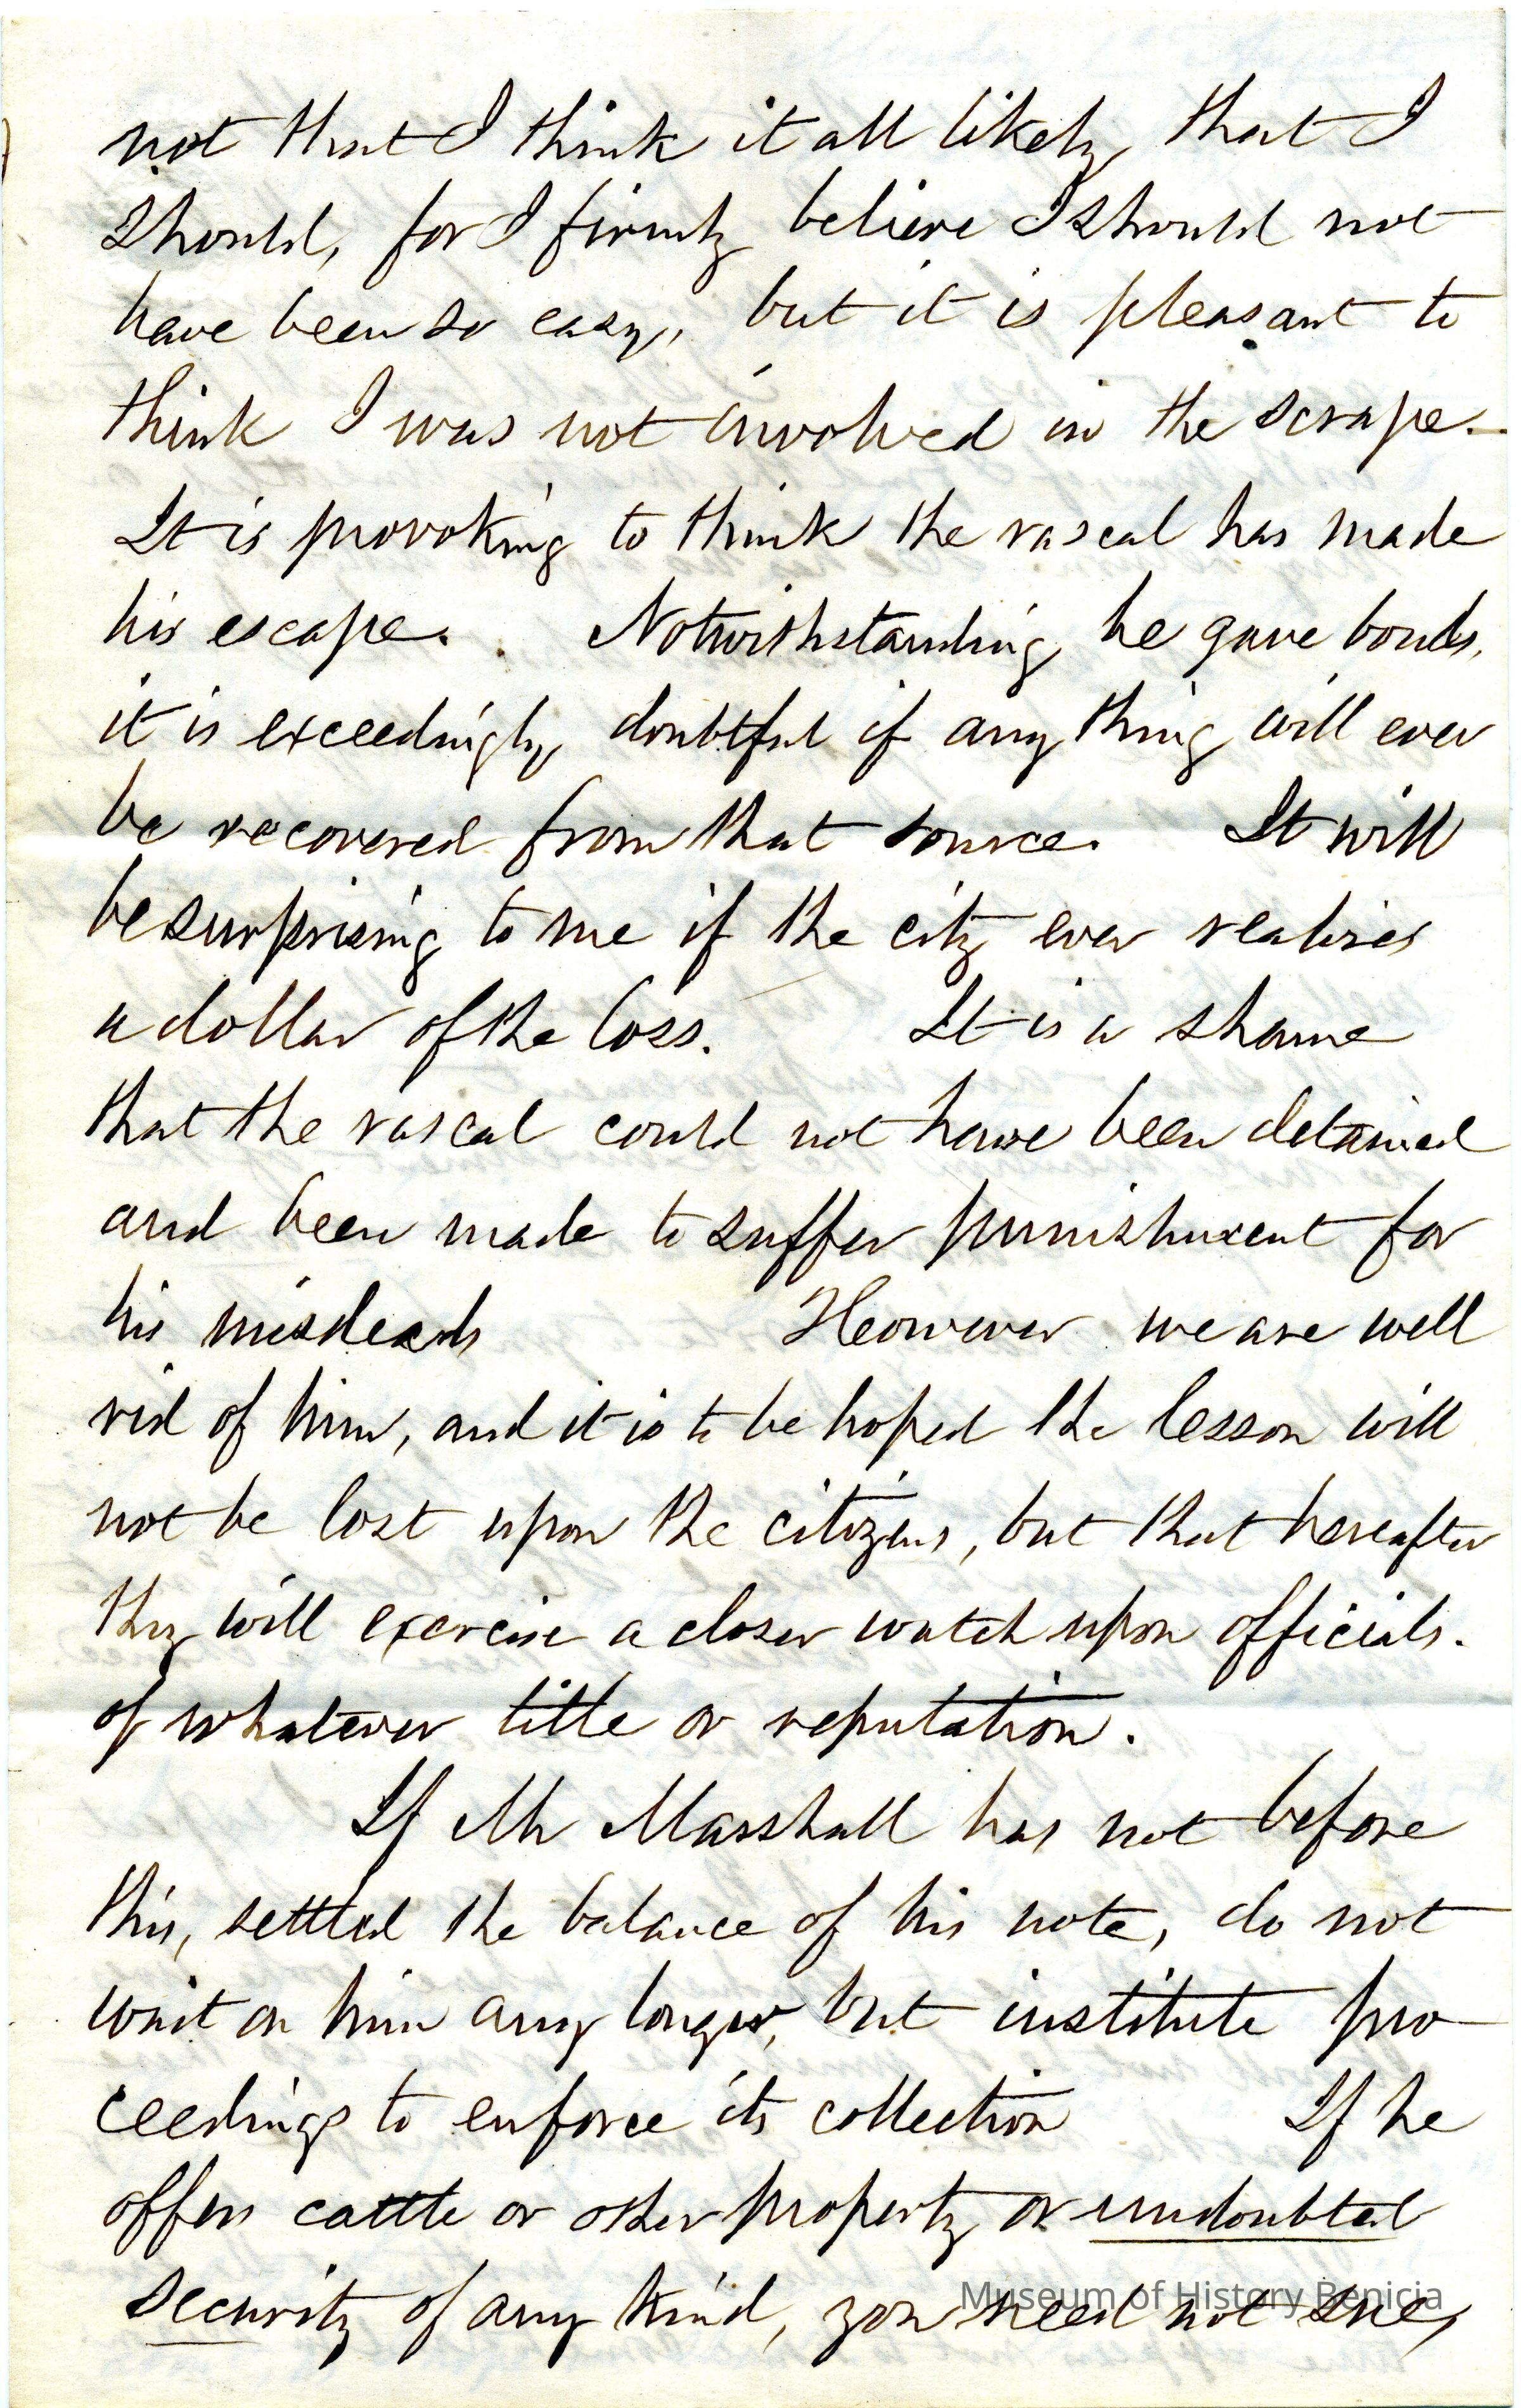 not that I think it all likely that I
should, for I firmly believe I should not
have been so easy, but it is pleasant to
think I was not involved in the scrape.
It is provoking to think the rascal has made
his escape. Notwithstanding he gave bonds,
it is exceedingly doubtful if any thing will ever
be recovered from that source. It will
be surprising to me if the city ever realizes
a dollar of the loss. It is a shame
that the rascal could not have been detained
and been made to suffer punishment for
his misdeeds However we are well
rid of him, and it is to be hoped the lesson will
not be lost upon the citizens, but that hereafter
they will exercise a closer watch upon officials.
of whatever title or reputation.
If Mr Marshall has not before
this, settled the balance of his note, do not
wait on him any longer, but institute pro
ceedings to enforce its collection If he
offers cattle or other property or undoubted
security of any kind, you need not sue,
Museum of History Benicia